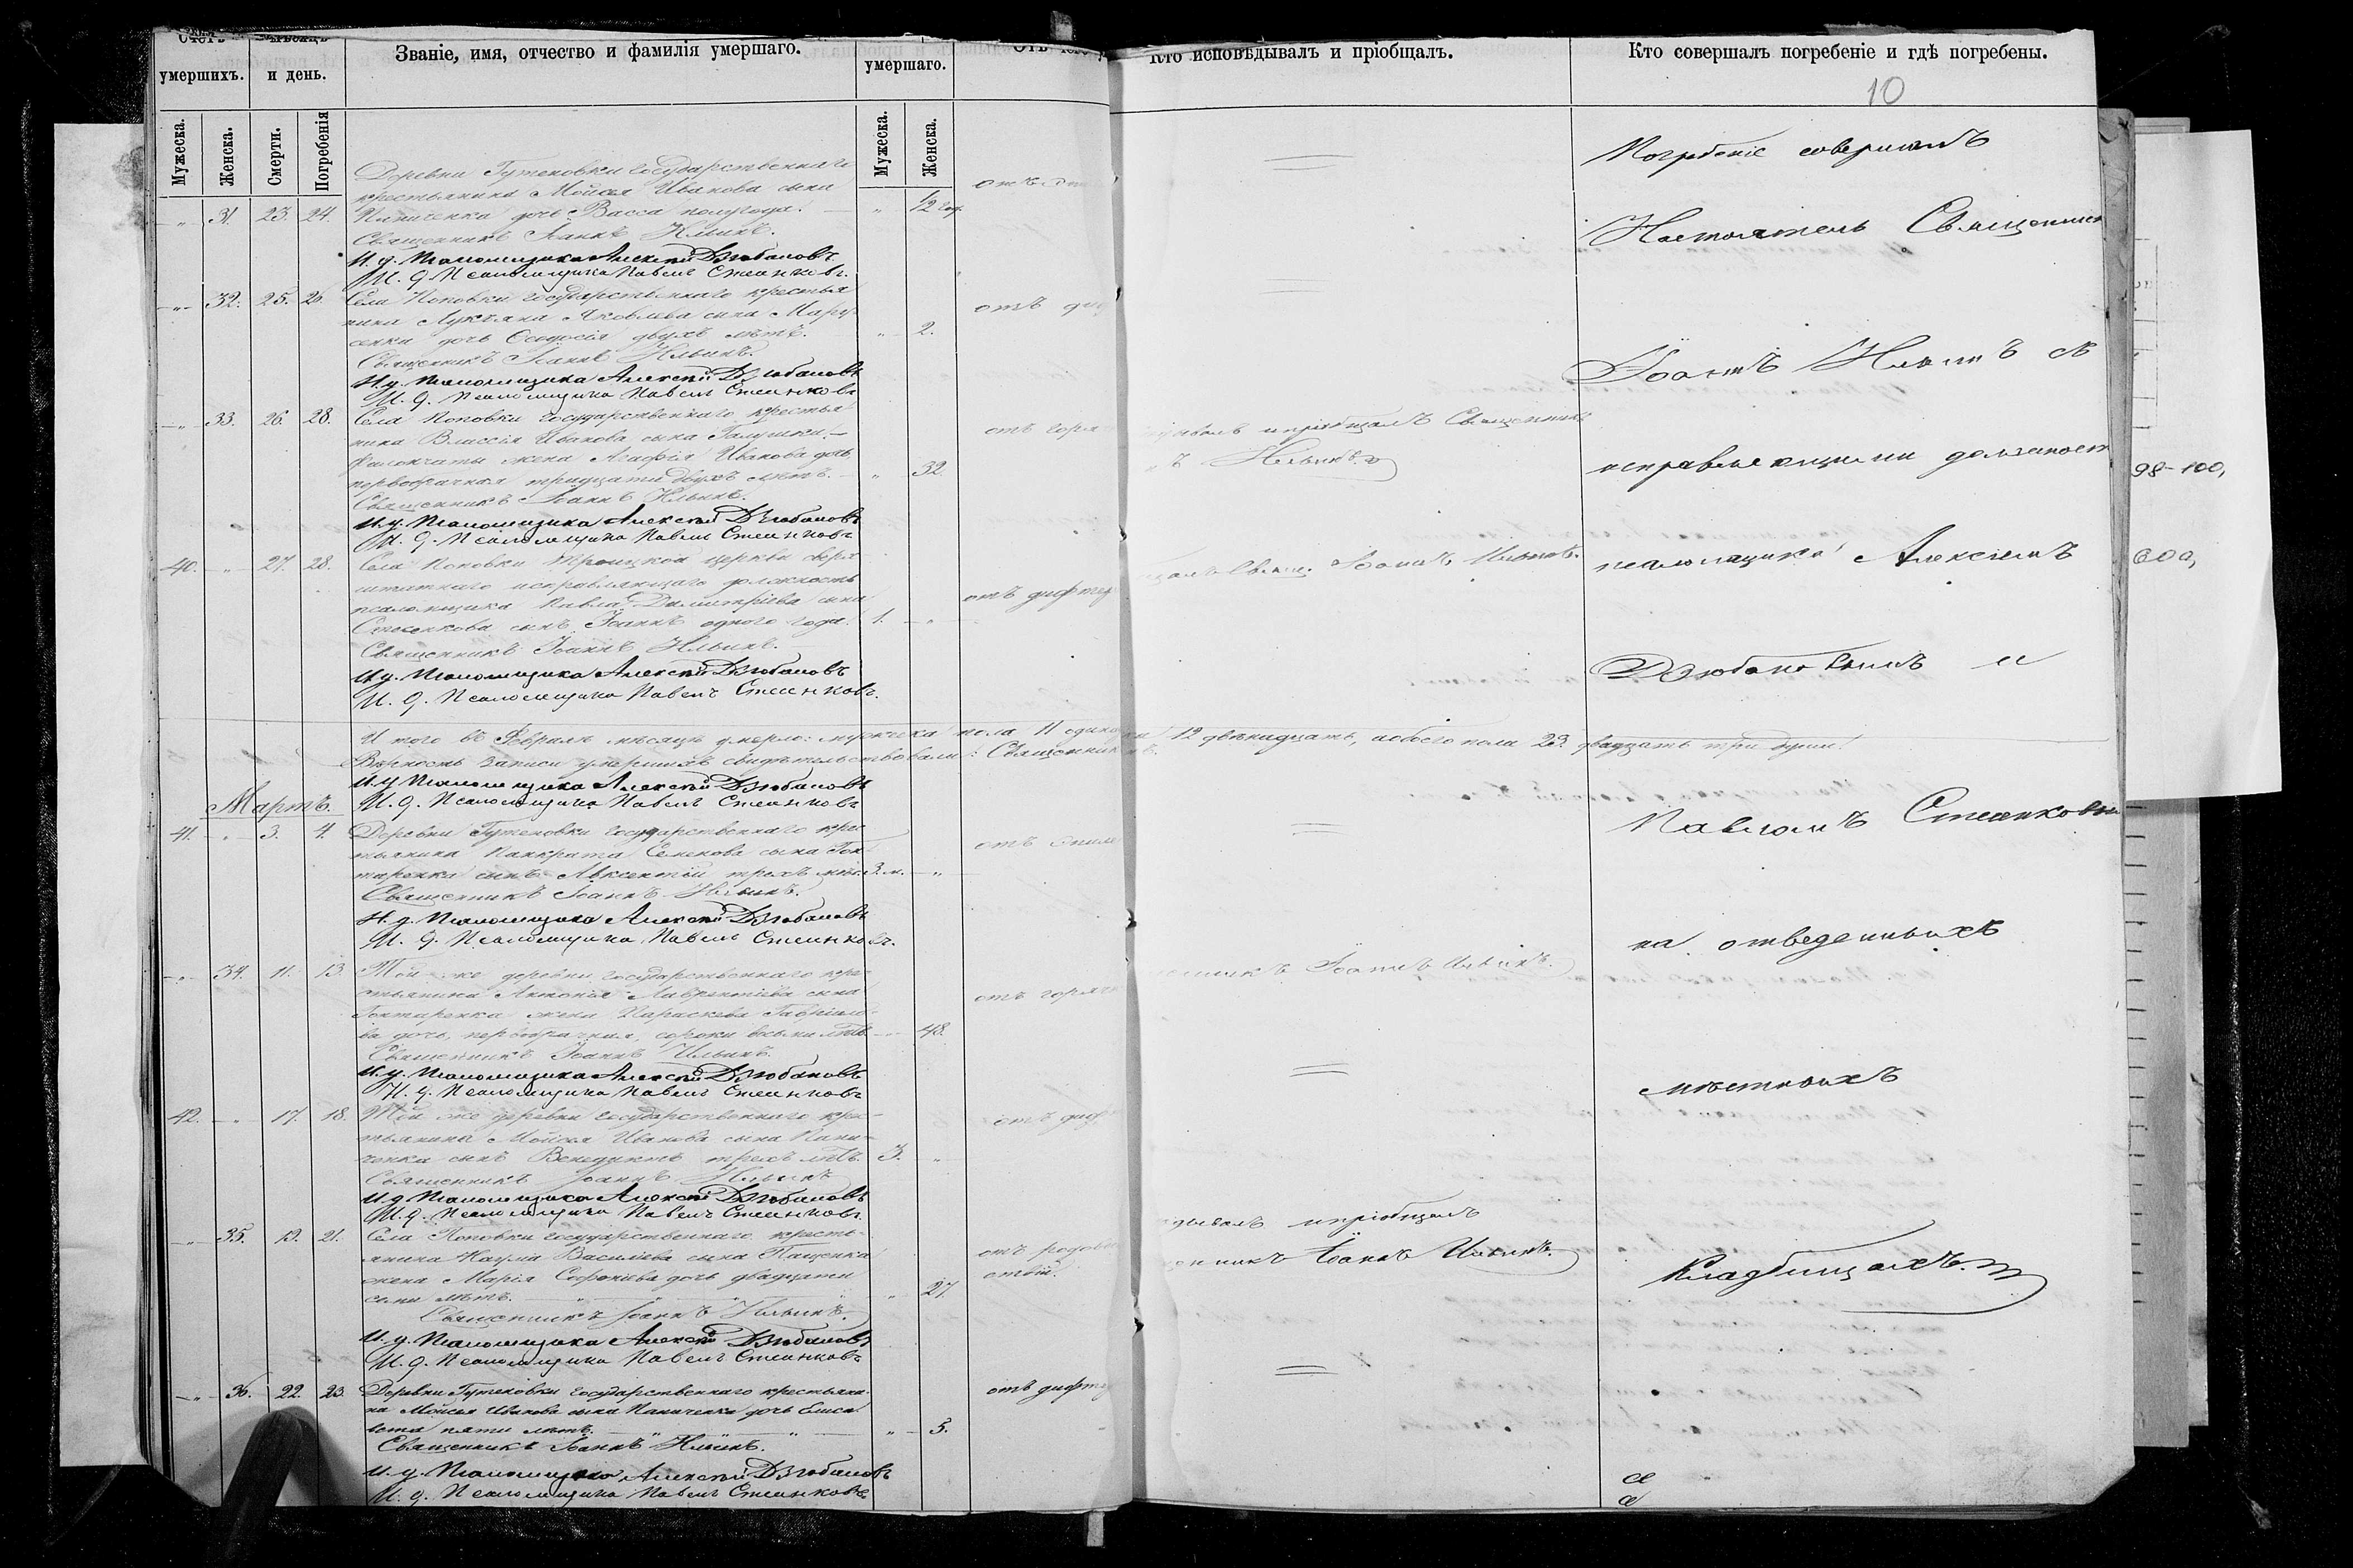 Счетъ
умершихъ.
Мѣсяцъ
и день.
Званіе, имя, отчество и фамилія умершаго.
умершаго.
Мужеска.
Женска.
Смерти.
Погребенія
Мужеска.
Женска.
Деревни Гутековки государственнаго
крестьянина Мойсея Иванова сына
31. 23. 24. дочь Васса полугода. 1/2 год.
Священникъ Іоаннъ Ильинъ.
И. д. Псаломщика Алексѣй Дзюбановъ
И. д. Псаломщика Павелъ Стеенковъ.
32. 25. 26. Села Поповки государственнаго крестья
нина Лукьяна Яковлева сына Мару-
сенка дочь Ѳеодосія двухъ лѣтъ. 2.
Священникъ Іоаннъ Ильинъ.
И. д. Псаломщика Алексѣй Дзюбановъ
И. д. Псаломщика Павелъ Стеенковъ
33. 26. 28. Села Поповки государственнаго крестья
нина Влассія Иванова сына Галушки
жена Агафія Иванова дочь
первобрачная тридцати двухъ лѣтъ. 32.
Священникъ Іоаннъ Ильинъ.
И. д. Псаломщика Алексѣй Дзюбановъ
И. д. Псаломщика Павелъ Стеенковъ
40. 27. 28. Села Поповки Троицкой церкви сверх
штатнаго исправляющаго должность
псаломщика Павла Димитріева сына
Стеенкова сынъ Іоаннъ одного года. 1.
отъ дифтер
Священникъ Іоаннъ Ильинъ.
И. д. Псаломщика Алексѣй Дзюбановъ
И. д. Псаломщика Павелъ Стеенковъ.
И того въ Февралѣ мѣсяцѣ умерло: мужеска пола 11 12 двѣнадцать, обоего пола 23. двадцать три души.
Вѣрность записи умершихъ свидѣтельствовали: Священник
И. д. Псаломщика Алексѣй Дзюбановъ
И. д. Псаломщика Павелъ Стеенковъ
Мартъ.
41. 3. 4. Деревни Гутековки государственнаго крес
тьянина Панкрата Семенова сына Гон
таренка сынъ Авксентій трехъ мѣс. 3. м.
Священникъ Іоаннъ Ильинъ.
И. д. Псаломщика Алексѣй Дзюбановъ
И. д. Псаломщика Павелъ Стеенковъ.
34. 11. 13. Той же деревни государственнаго кре-
стьянина Антонія Лаврентіева сына
Гонтаренка жена Параскева Гавріило-
ва дочь, первобрачная, сорока восьми лѣтъ 48.
отъ горяч
Священникъ Іоаннъ Ильинъ.
И. д. Псаломщика Алексѣй Дзюбановъ
И. д. Псаломщика Павелъ Стеенковъ
42. 17. 18. Той же деревни государственнаго крес-
тьянина Мойсея Иванова сына Папи-
ченка сынъ Венедиктъ трехъ лѣтъ. 3.
отъ диф
Священникъ Іоаннъ Ильинъ
И. д. Псаломщика Алексѣй Дзюбановъ
И. д. Псаломщика Павелъ Стеенковъ.
35. 19. 21. Села Поповки государственнаго кресть-
янина Наума Василіева сына Пащенка
жена Марія Софоніева дочь двадцати
семи лѣтъ. 27.
Священникъ Іоаннъ Ильинъ.
И. д. Псаломщика Алексѣй Дзюбановъ
И. д. Псаломщика Павелъ Стеенковъ
36. 22. 23. Деревни Гутековки государственнаго крестьяни-
на Мойсея Иванова сына Папиченка дочь Елиса
вета пяти лѣтъ. 5.
отъ дифте
Священникъ Іоаннъ Ильинъ.
И. д. Псаломщика Алексѣй Дзюбановъ
И. д. Псаломщика Павелъ Стеенковъ
Кто исповѣдывалъ и пріобщалъ.
Кто совершалъ погребеніе и гдѣ погребены.
10
и пріобщалъ Священник
Ильинъ.
Свящ. Іоаннъ Ильинъ.
Іоаннъ Ильинъ.
и пріобщалъ
Іоаннъ Ильинъ.
Погребеніе совершалъ
Настоятель Священник
Іоаннъ Ильинъ съ
исправляющими должност
псаломщика Алексіемъ
Дзюбановымъ и
Павломъ Стеенковы
на отведенныхъ
мѣстныхъ
Кладбищахъ.
98-100,
600,